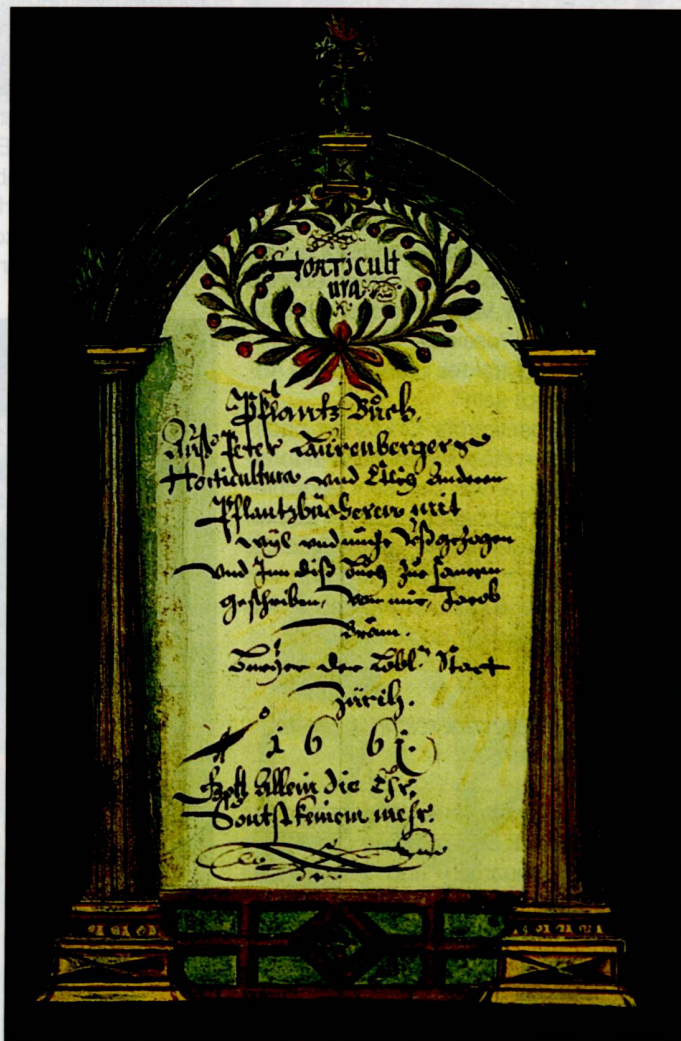 Horticult
ura
Pflantz Buch,
Auß Peter Laurenbergers
Horticultura und Etlich Anderen
Pflantzbücheren mit
vnd ußgezogen
Vnd Inn diß Buch zue samen
geschriben, Von mir, Jacob
Bräm.
Burger der Lobl. Statt
Zürich.
1661.
Gott Allein die Ehr,
Sontst keinem mehr.